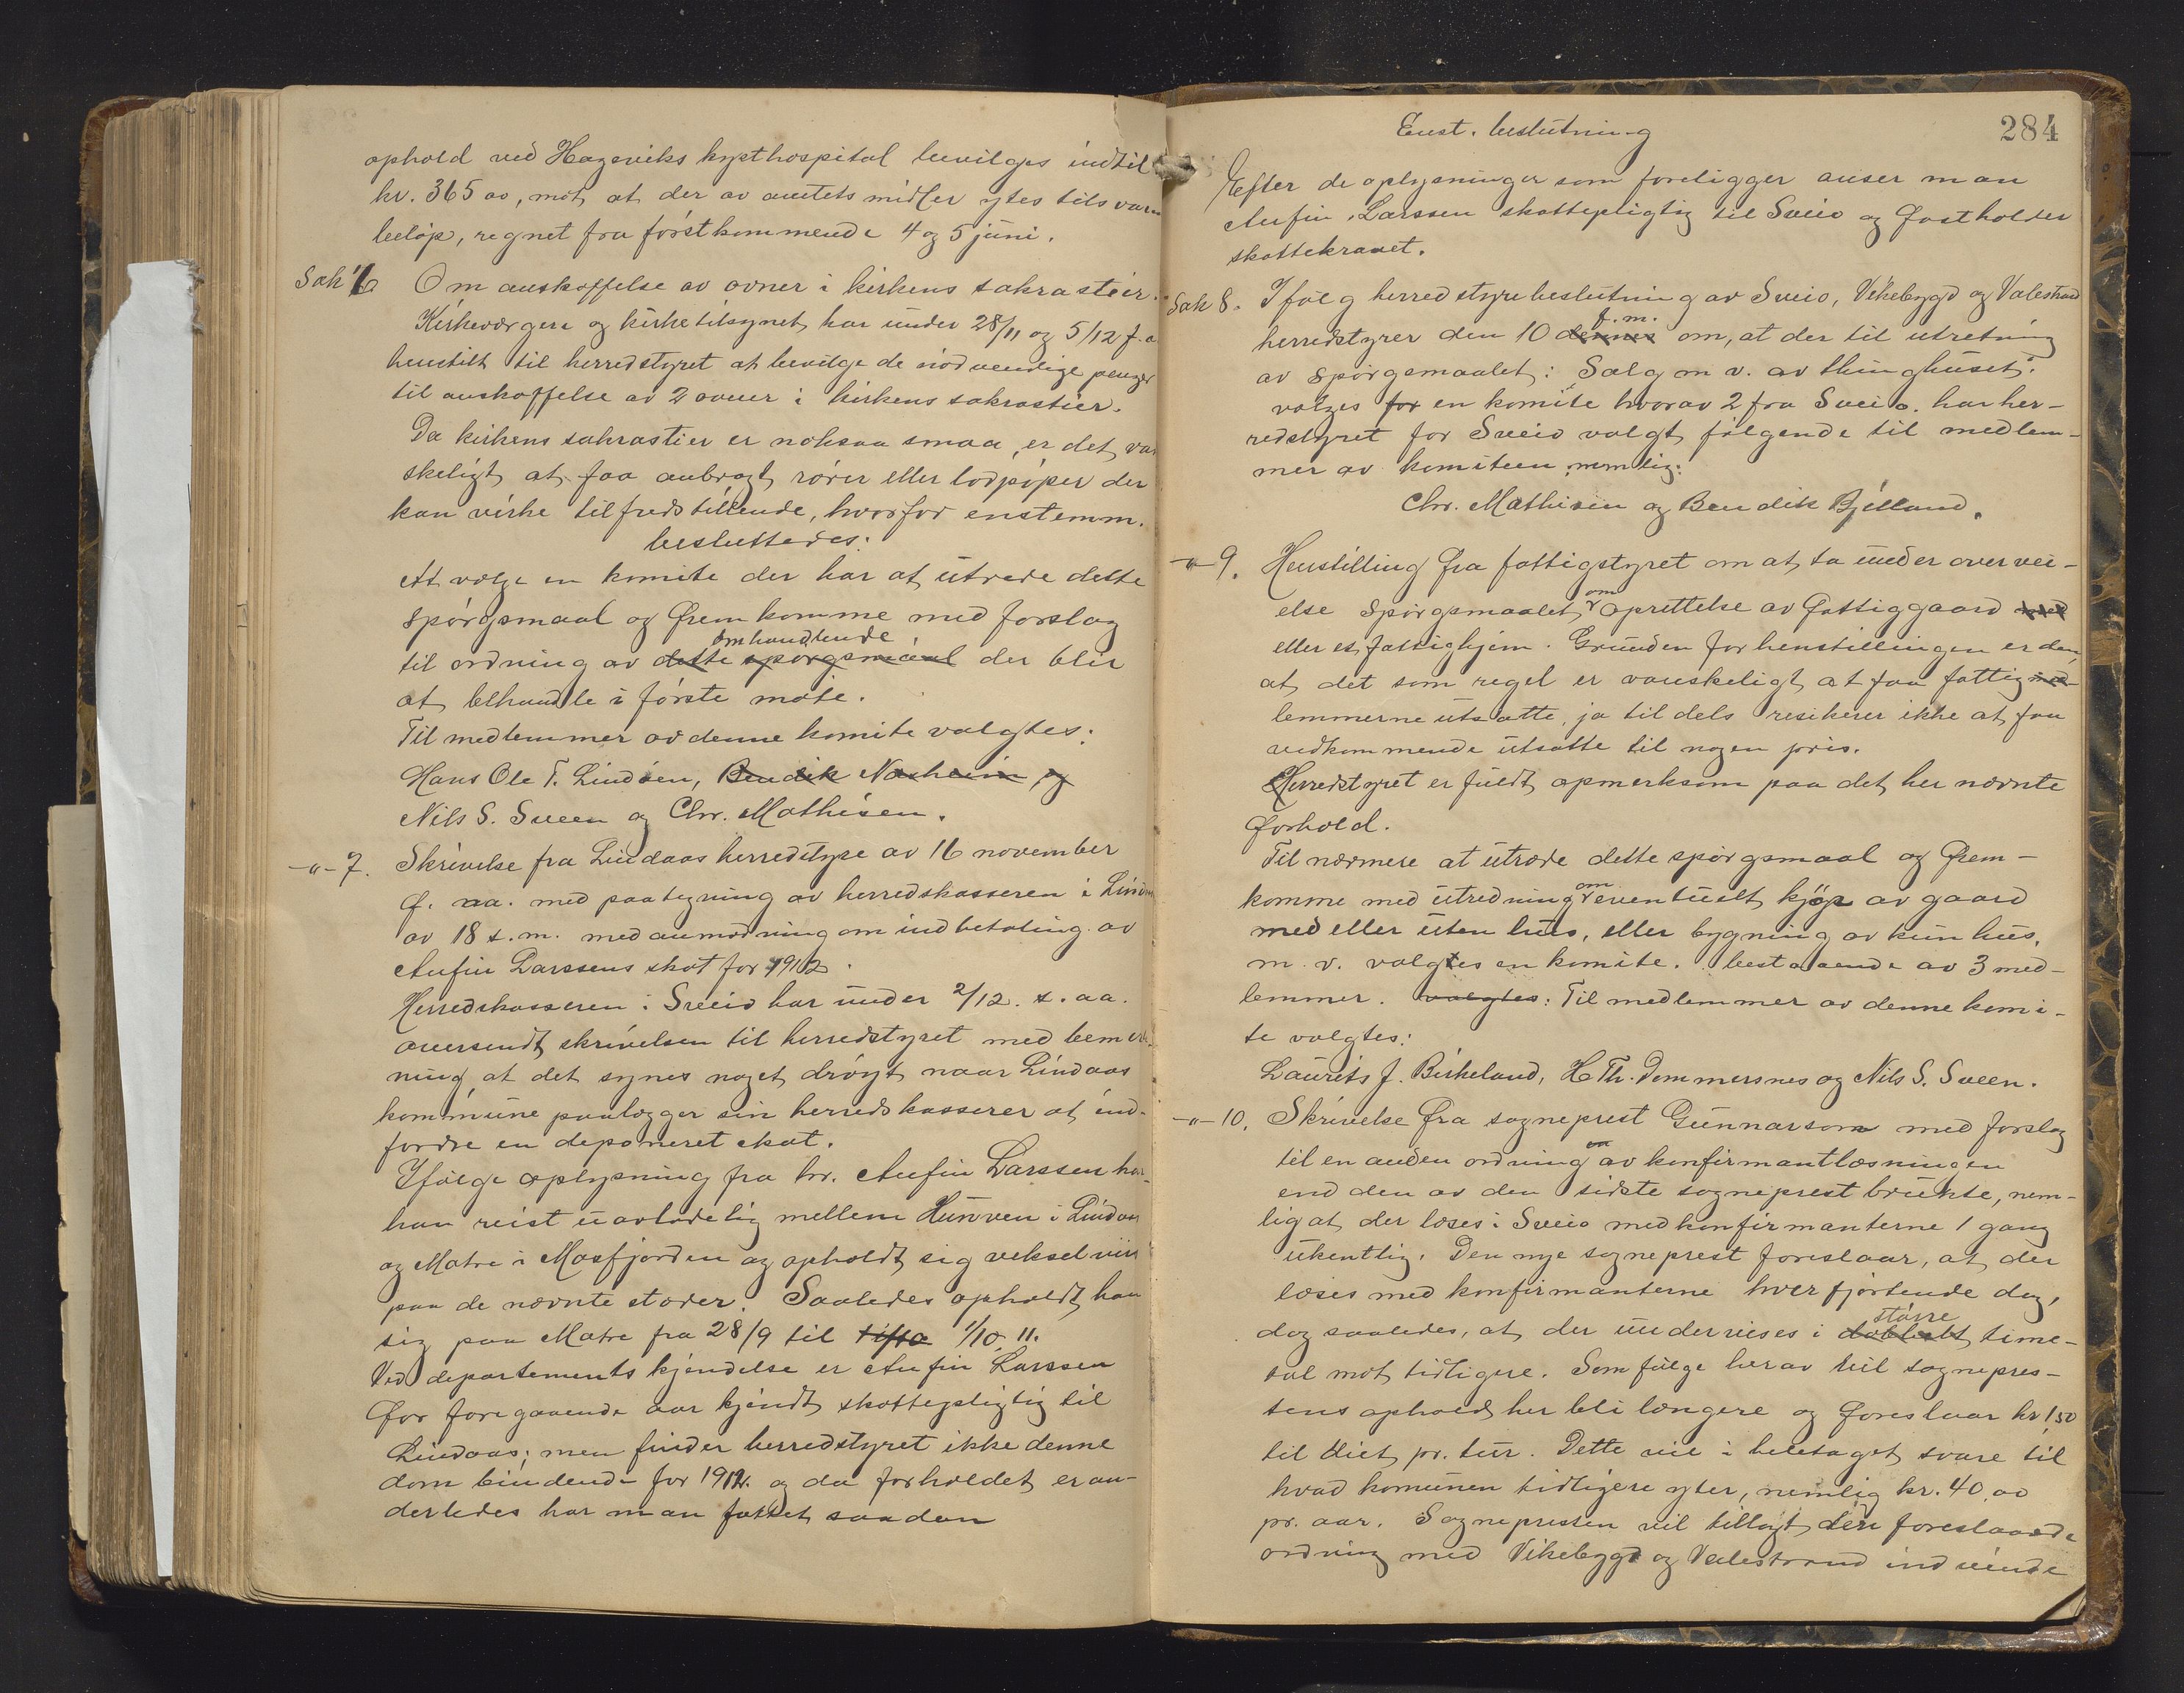 ophold ved Hageviks kysthospital bevilges indtil
kr. 365 00, mot at der av amtets midler ytes tilsvar
beløp, regnet fra førstkommende 4 og 5 juni.
Sak 6 Om anskaffelse av ovner i kirkens sakrastier.
Kirkeværgere og kirketilsynet har under 28/11 og 5/12 f. a
henstilt til herredstyret at bevilge de nødvendige penger
til anskaffelse av 2 ovner i kirkens sakrastier.
Da kirkens sakrastier er noksaa smaa, er det van
skeligt at faa anbragt rører eller lodpiper der
kan virke tilfredstillende, hvorfor enstemm.
besluttedes:
At vælge en komite der har at utrede dette
spørgsmaal og fremkomme med forslag
omhandlende
til ordning av dette spørgsmaal der blir
at behandle i første møte.
Til medlemmer av denne komite valgtes:
Hans Ole T. Lindøen, Bendik Næsheim og
Nils S. Sveen og Chr. Mathisen.
-"- 7. Skrivelse fra Lindaas herredstyre av 16 november
f. aa. med paategning av herredskasseren i Lindaas
av 18 s. m. med anmodning om indbetaling av
Anfin Larssens skat for 1912.
Herredskasseren i Sveio har under 2/12. s. aa.
oversendt skrivelsen til herredstyret med bemerk
ning, at det synes noget drøgt naar Lindaas
kommune paalægger sin herredskasserer at ind-
fordre en deponeret skat.
Ifølge oplysning fra hr. Anfin Larssen har
han reist uavladelig mellem Hunven i Lindaas
og Matre i Masfjorden og opholdt sig vekselvis
paa de nævnte stæder. Saaledes opholdt han
sig paa Matre fra 28/9 til 1/10 11.
Ved departements kjendelse er Anfin Larssen
for foregaaende aar kjendt skattepligtig til
Lindaas; men finder herredstyret ikke denne
dom bindende for 1912. og da forholdet er an-
derledes har man fattet saadan
284
Enst. beslutning
Efter de oplysninger som foreligger anser man
Anfin Larssen skattepligtig til Sveio og fastholder
skattekravet.
Sak 8. Ifølg herredstyrebeslutning av Sveio, Vikebygd og Valestrand
f. m.
herredstyrer den 10 dennes om, at der til utretning
av spørgsmaalet: Salg m v. av thinghuset.
valges for en komite hvorav 2 fra Sveio. har her-
redstyret for Sveio valgt følgende til medlem-
mer av komiteen, nemlig:
Chr. Mathisen og Bendik Bjelland.
-"- 9. Henstilling fra fattigstyret om at ta under overvei-
om
else spørgsmaalet oprettelse av fattiggaard med
eller et fattighjem. Grunden for henstillingen er den,
at det som regel er vanskeligt at faa fattig
lemmerne utsatte, ja til dels resikerer ikke at faa
vedkommende utsatte til nogen pris.
Herredstyret er fuldt opmerksom paa det her nævnte
forhold.
Til nærmere at utræde dette spørgsmaal og frem-
om
komme med utredning eventuelt kjøp av gaard
med eller uten hus, eller bygning av kun hus,
m. v. valgtes en komite. bestaaende av 3 med-
lemmer. valgtes: Til medlemmer av denne komi-
te valgtes:
Laurits J. Birkeland, H Th. Dommersnes og Nils S. Sveen.
-"- 10. Skrivelse fra sogneprest Gunnarson med forslag
om
til en anden ordning av konfirmantlæsningen
end den av den sidste sogneprest brukte, nem-
lig at der læses i Sveio med konfirmanterne 1 gang
ukentlig. Den nye sogneprest foreslaar, at der
læses med konfirmanterne hver fjortende dag,
større
dog saaledes, at der undervises i dobbelt time-
tal mot tidligere. Som følge herav vil sognepres-
tens ophold her bli længere og foreslaar kr 1,50
til diet pr. tur. Dette vil i heletaget svare til
hvad komunen tidligere yter, nemlig kr. 40,00
pr. aar. Sognepresten vil tillagt den foreslaaede
ordning med Vikebygd og Valestrand indvinde